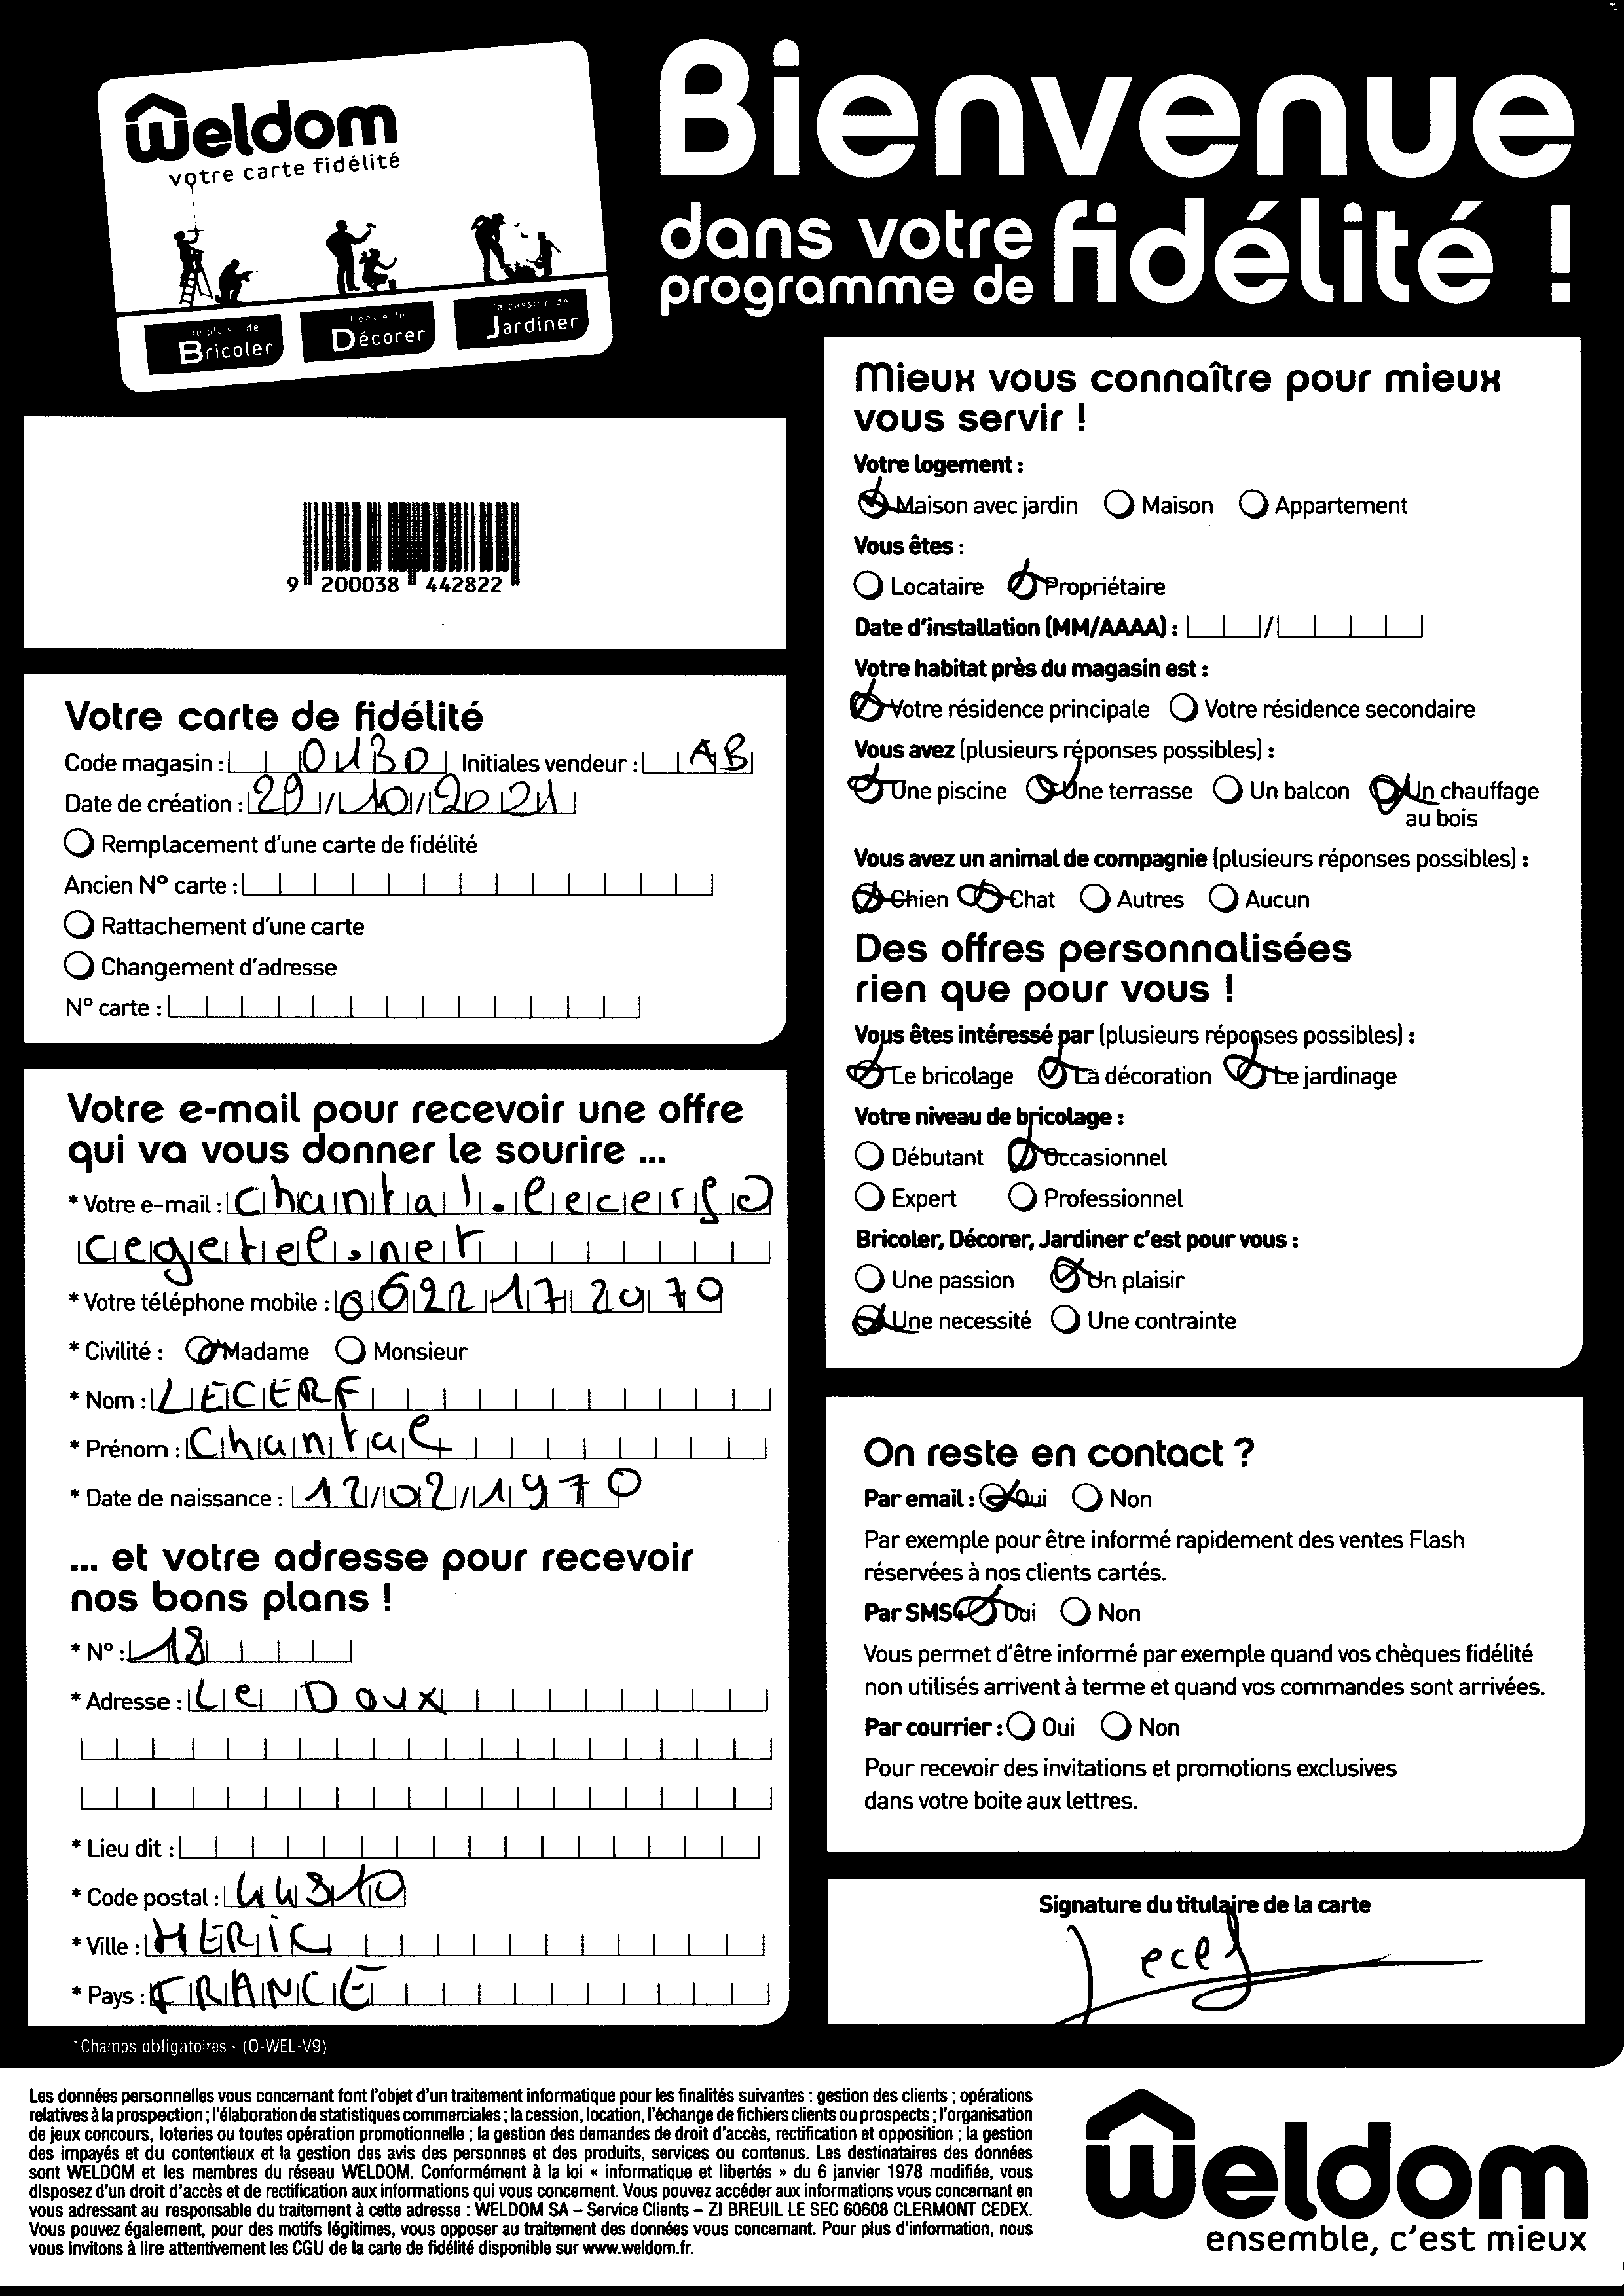 Weldom
votre carte fidélité
le plaisir de
Bricoler
l'envie de
Décorer
la passion de
Jardiner
Bienvenue
dans votre
programme de fidélité !
9 200038 442822
Votre carte de fidélité
Code magasin : 0430 Initiales vendeur : AB
Date de création : 29/10/2021
Remplacement d'une carte de fidélité
Ancien N° carte :
Rattachement d'une carte
Changement d'adresse
N° carte :
Votre e-mail pour recevoir une offre
qui va vous donner le sourire ...
* Votre e-mail : chantal.lecerf@
cegetel.net
* Votre téléphone mobile : 0622172070
* Civilité : Madame Monsieur
* Nom : LECERF
* Prénom : Chantal
* Date de naissance : 12/02/1970
... et votre adresse pour recevoir
nos bons plans !
* N° : 18
* Adresse : Le Doux
* Lieu dit :
* Code postal : 44810
* Ville : HERIC
* Pays : FRANCE
*Champs obligatoires - (Q-WEL-V9)
Mieux vous connaître pour mieux
vous servir !
Votre logement :
Maison avec jardin Maison Appartement
Vous êtes :
Locataire Propriétaire
Date d'installation (MM/AAAA) : /
Votre habitat près du magasin est :
Votre résidence principale Votre résidence secondaire
Vous avez (plusieurs réponses possibles) :
Une piscine Une terrasse Un balcon Un chauffage
au bois
Vous avez un animal de compagnie (plusieurs réponses possibles) :
Chien Chat Autres Aucun
Des offres personnalisées
rien que pour vous !
Vous êtes intéressé par (plusieurs réponses possibles) :
Le bricolage La décoration Le jardinage
Votre niveau de bricolage :
Débutant Occasionnel
Expert Professionnel
Bricoler, Décorer, Jardiner c'est pour vous :
Une passion Un plaisir
Une necessité Une contrainte
On reste en contact ?
Par email : Oui Non
Par exemple pour être informé rapidement des ventes Flash
réservées à nos clients cartés.
Par SMS : Oui Non
Vous permet d'être informé par exemple quand vos chèques fidélité
non utilisés arrivent à terme et quand vos commandes sont arrivées.
Par courrier : Oui Non
Pour recevoir des invitations et promotions exclusives
dans votre boite aux lettres.
Signature du titulaire de la carte
Lecerf
Les données personnelles vous concernant font l'objet d'un traitement informatique pour les finalités suivantes : gestion des clients ; opérations
relatives à la prospection ; l'élaboration de statistiques commerciales ; la cession, location, l'échange de fichiers clients ou prospects ; l'organisation
de jeux concours, loteries ou toutes opération promotionnelle ; la gestion des demandes de droit d'accès, rectification et opposition ; la gestion
des impayés et du contentieux et la gestion des avis des personnes et des produits, services ou contenus. Les destinataires des données
sont WELDOM et les membres du réseau WELDOM. Conformément à la loi « informatique et libertés » du 6 janvier 1978 modifiée, vous
disposez d'un droit d'accès et de rectification aux informations qui vous concernent. Vous pouvez accéder aux informations vous concernant en
vous adressant au responsable du traitement à cette adresse : WELDOM SA – Service Clients – ZI BREUIL LE SEC 60608 CLERMONT CEDEX.
Vous pouvez également, pour des motifs légitimes, vous opposer au traitement des données vous concernant. Pour plus d'information, nous
vous invitons à lire attentivement les CGU de la carte de fidélité disponible sur www.weldom.fr.
Weldom
ensemble, c'est mieux